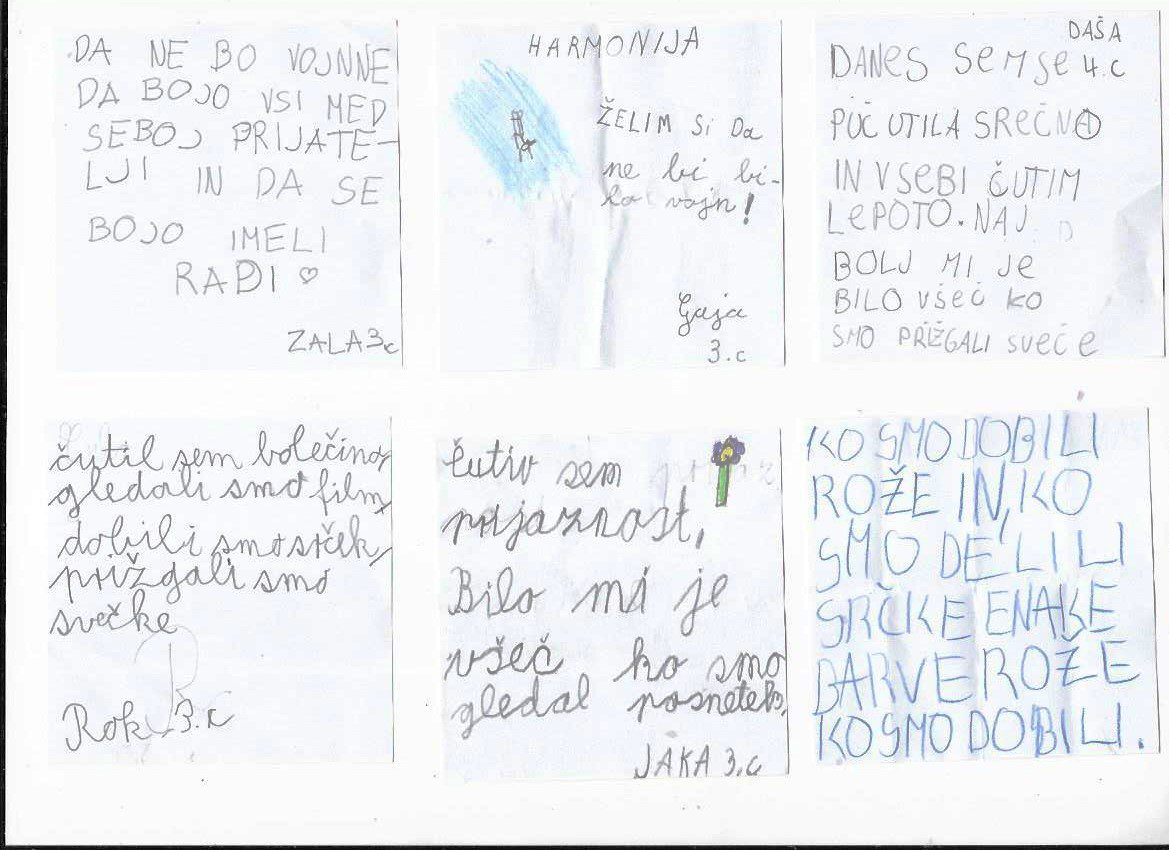 DA NE BO VOJNNE
DA BOJO VSI MED
SEBOJ PRIJATE-
LJI IN DA SE
BOJO IMELI
RADI ♡
ZALA 3.c
HARMONIJA
ŽELIM Si Da
ne bi bi-
lo vojn!
Gaja
3.c
DAŠA
DANES SEM SE 4.C
POČUTILA SREČNO
IN V SEBI ČUTIM
LEPOTO. NAJ
BOLJ MI JE
BILO VŠEČ KO
SMO PRIŽGALI SVEČE
čutil sem bolečino,
gledali smo film,
dobili smo srček,
prižgali smo
svečke
Rok 3.c
čutiv sem
prijaznost,
Bilo mi je
všeč ko smo
gledal posnetek,
JAKA 3.c
KO SMO DOBILI
ROŽE IN, KO
SMO DELILI
SRČKE ENAKE
BARVE ROŽE
KO SMO DOBILI.